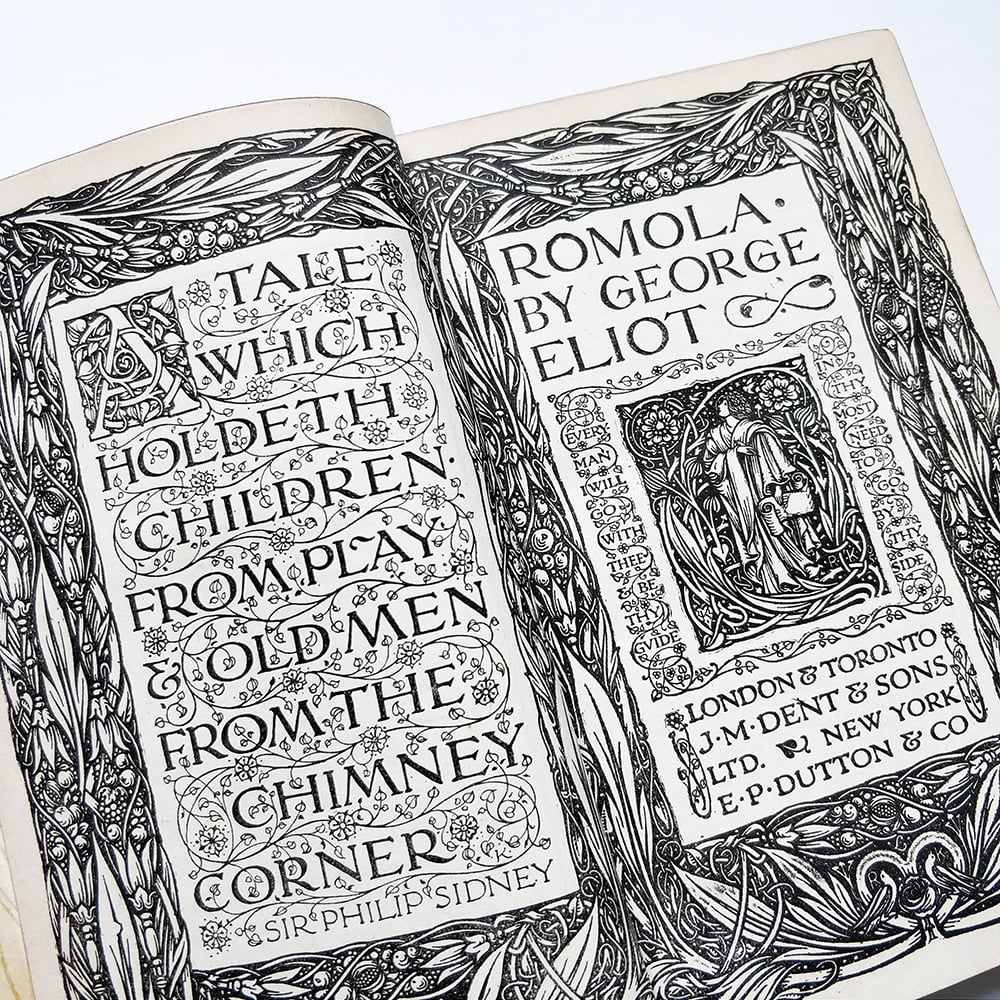 A TALE
WHICH
HOLDETH
CHILDREN
FROM PLAY
& OLD MEN
FROM THE
CHIMNEY
CORNER
SIR PHILIP SIDNEY
ROMOLA·
BY GEORGE
ELIOT
EVERY
MAN
I WILL
GO
WITH
THEE
& BE
THY
GVIDE
IN
THY
MOST
NEED
TO
GO
BY
THY
SIDE
LONDON & TORONTO
J·M·DENT & SONS
LTD. NEW YORK
E·P·DUTTON & CO